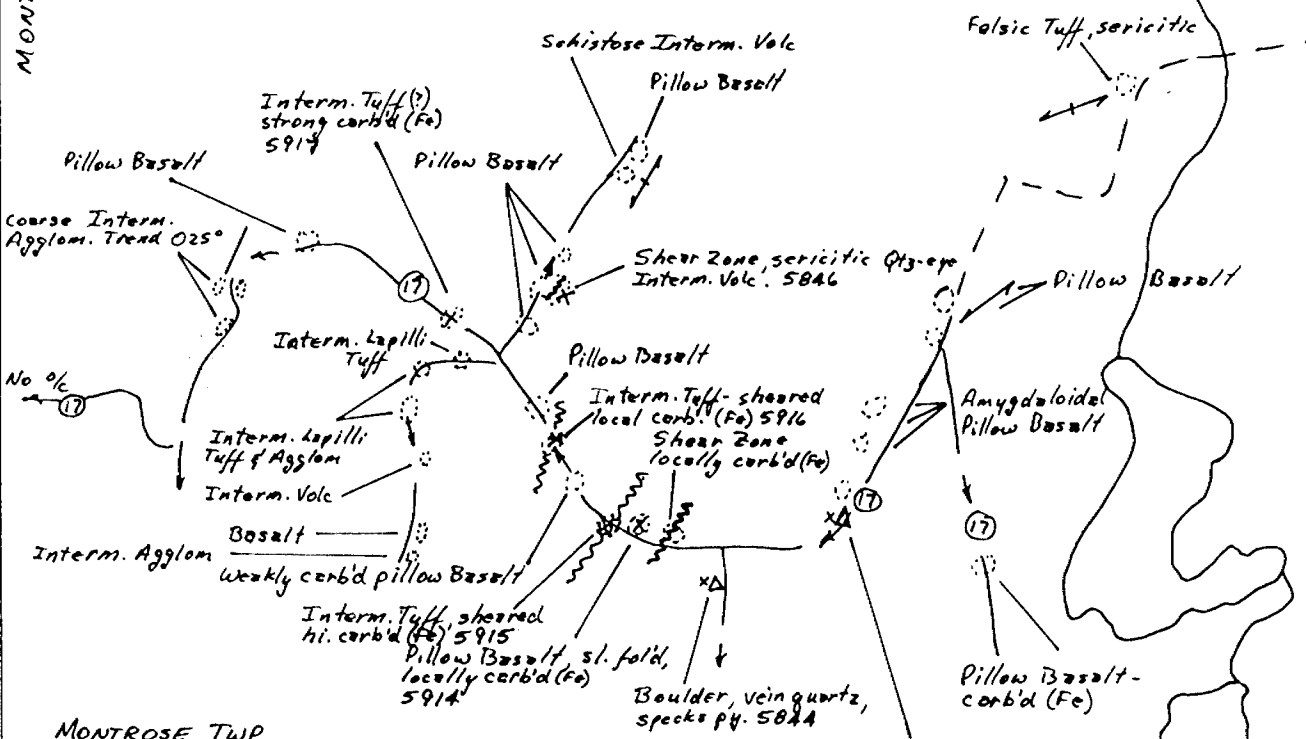 MONT
Schistose Interm. Volc
Pillow Basalt
Felsic Tuff, sericitic
Interm. Tuff (?)
strong carb'd (Fe)
5917
Pillow Basalt
Pillow Basalt
Coarse Interm.
Agglom. Trend 025°
Shear Zone, sericitic Qtz-eye
Interm. Volc. 5846
Pillow Basalt
17
Interm. Lapilli
Tuff
Pillow Basalt
No o/c
17
Interm. Tuff - sheared
local carb. (Fe) 5916
Shear Zone
locally carb'd (Fe)
Amygdaloidal
Pillow Basalt
Interm. Lapilli
Tuff & Agglom
Interm. Volc
17
17
Basalt
Interm. Agglom
Weakly carb'd pillow Basalt
Interm. Tuff, sheared
hi. carb'd (Fe) 5915
Pillow Basalt, sl. fol'd,
locally carb'd (Fe)
5914
Boulder, vein quartz,
specks py. 5844
Pillow Basalt -
carb'd (Fe)
MONTROSE TWP